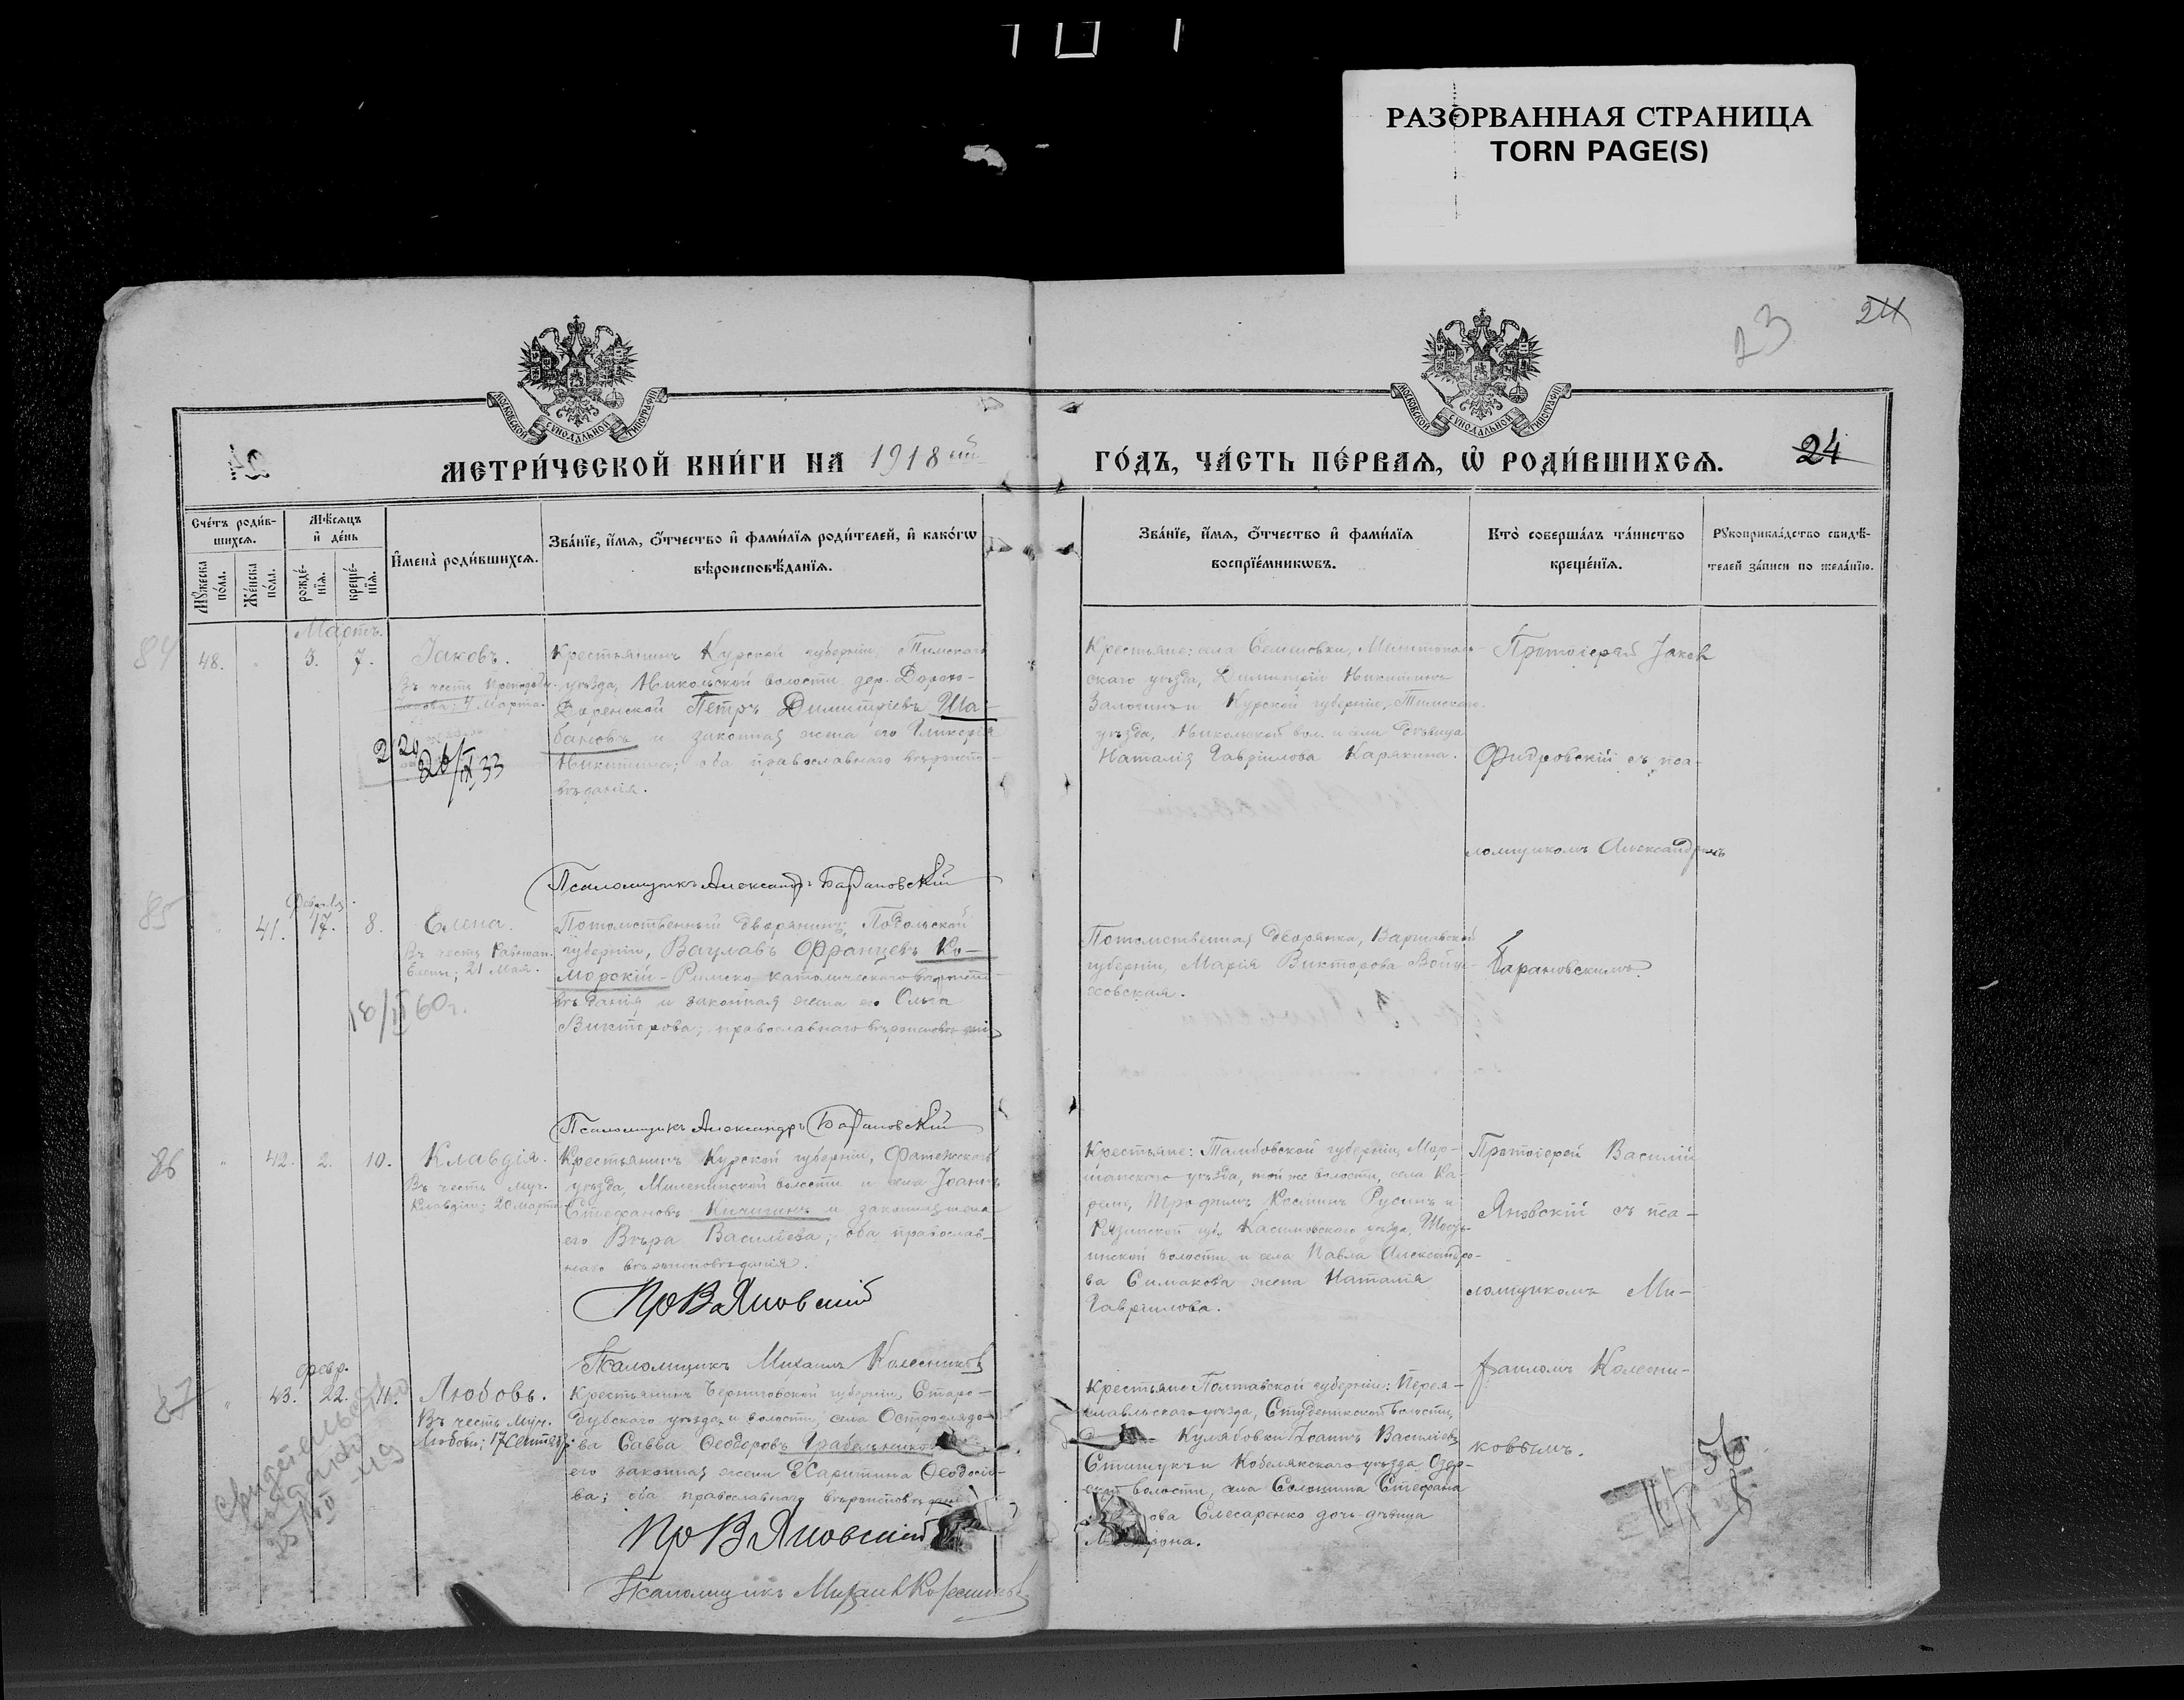 РАЗОРВАННАЯ СТРАНИЦА
TORN PAGE(S)
23
24
МОСКОВСКОЙ СУНОДАЛЬНОЙ ТИПОГРАФІИ
МОСКОВСКОЙ СУНОДАЛЬНОЙ ТИПОГРАФІИ
МЕТРИ́ЧЕСКОЙ КНИ́ГИ НА 1918 ый
ГО́ДЪ, ЧА́СТЬ ПЕ́РВАЯ, Ѡ҆ РОДИ́ВШИХСЯ.
24
Сче́тъ роди́в-
шихся.
Мѣ́сяцъ
и҆ де́нь
Мꙋ́жеска по́ла.
Же́нска по́ла.
рожде́-
нїя.
креще́-
нїя.
И҆мена̀ роди́вшихся.
Зва́нїе, и҆́мя, ѻ҆́тчество и҆ фами́лїя роди́телей, и҆ како́гѡ
вѣроисповѣ́данїя.
Зва́нїе, и҆́мя, ѻ҆́тчество и҆ фами́лїя
воспрїе́мникѡвъ.
Кто̀ соверша́лъ та́инство
креще́нїя.
Рꙋкоприкла́дство свидѣ́-
телей за́писи по жела́нїю.
84
Мартъ.
48. " 3. 7.
Іаковъ.
Въ честь Преподобн.
Іакова; 4 Марта.
26/IX 33
Крестьянинъ Курской губерніи, Тимскаго
уѣзда, Никольской волости, дер.
Петръ Димитріевъ Ша-
бановъ и законная жена его Гликерія
Никитина; оба православнаго вѣроиспо-
вѣданія.
Псаломщикъ Александръ Барановскій
Крестьяне: села Семеновки, Мелитополь-
скаго уѣзда, Димитрій Никитинъ
и Курской губерніи, Тимскаго
уѣзда, Никольской вол. и села дѣвица
Наталія Гавріилова Карякина.
Протоіерей Іаковъ
Фидровскій съ пса-
ломщикомъ Александромъ
Барановскимъ.
85
Февраль.
" 41. 17. 8.
Елена.
Въ честь Равноап.
Елены; 21 Мая.
60г.
Потомственный дворянинъ, Подольской
губерніи, Вацлавъ Францевъ Ко-
морскій - Римско-католическаго вѣроиспо-
вѣданія и законная жена его Ольга
Викторова; православнаго вѣроисповѣданія
Псаломщикъ Александръ Барановскій
Потомственная дворянка, Варшавской
губерніи, Марія Викторова Войце-
ховская.
86
" 42. 2. 10.
Клавдія.
Въ честь муч.
Клавдіи; 20 марта
Крестьянинъ Курской губерніи, Фатежскаго
уѣзда, Миленинской волости и села Іоаннъ
Стефановъ Кичигинъ и законная жена
его Вѣра Василіева; оба православ-
наго вѣроисповѣданія.
Пр В Яновскій
Псаломщикъ Михаилъ Колесниковъ
Крестьяне: Тамбовской губерніи, Мор-
шанскаго уѣзда, той же волости, села Ка-
рели, Трофимъ Косминъ Русинъ и
Рязанской губ. Касимовскаго уѣзда,
инской волости и села Павла Александро-
ва Симакова жена Наталія
Гавріилова.
Протоіерей Василій
Яновскій съ пса-
ломщикомъ Ми-
хаиломъ Колесни-
ковымъ.
87
Февр.
" 43. 22. 11.
Любовь.
Въ честь Муч.
Любови; 17 Сентября
Свидетельство
выдано
25/VI - 49
Крестьянинъ Черниговской губерніи, Старо-
дубскаго уѣзда и волости, села Остроглядо-
ва Савва Ѳеодоровъ
его законная жена Харитина Ѳеодосіе-
ва; оба православнаго вѣроисповѣданія
Пр В Яновскій
Псаломщикъ Михаилъ Колесниковъ
Крестьяне Полтавской губерніи: Перея-
славльскаго уѣзда, Студеникской волости,
Кулябовки Іоаннъ Василіевъ
и Кобелякскаго уѣзда
волости, села Солошина Стефана
ова Слесаренко дочь-дѣвица
56